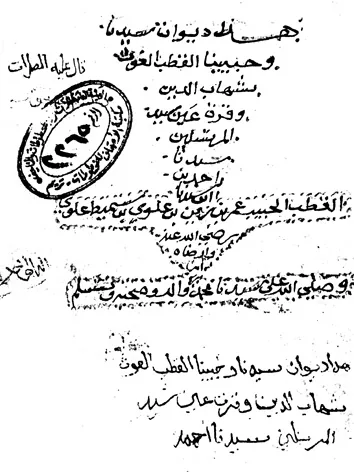 هذا ديوان سيدنا
وحبيبنا القطب الغوث
شهاب الدين
وقرة عين سيد
المرسلين
سيدنا
احمد بن
القطب الحبيب عمر بن زين بن علوي بن سميط علوي
رضي الله عنه
وارضاه
امين
وصلى الله على سيدنا محمد واله وصحبه وسلم
قال عليه الصلوات
٢٢٦٥
هذا ديوان سيدنا وحبيبنا القطب الغوث
شهاب الدين وقرة عين سيد
المرسلين سيدنا احمد